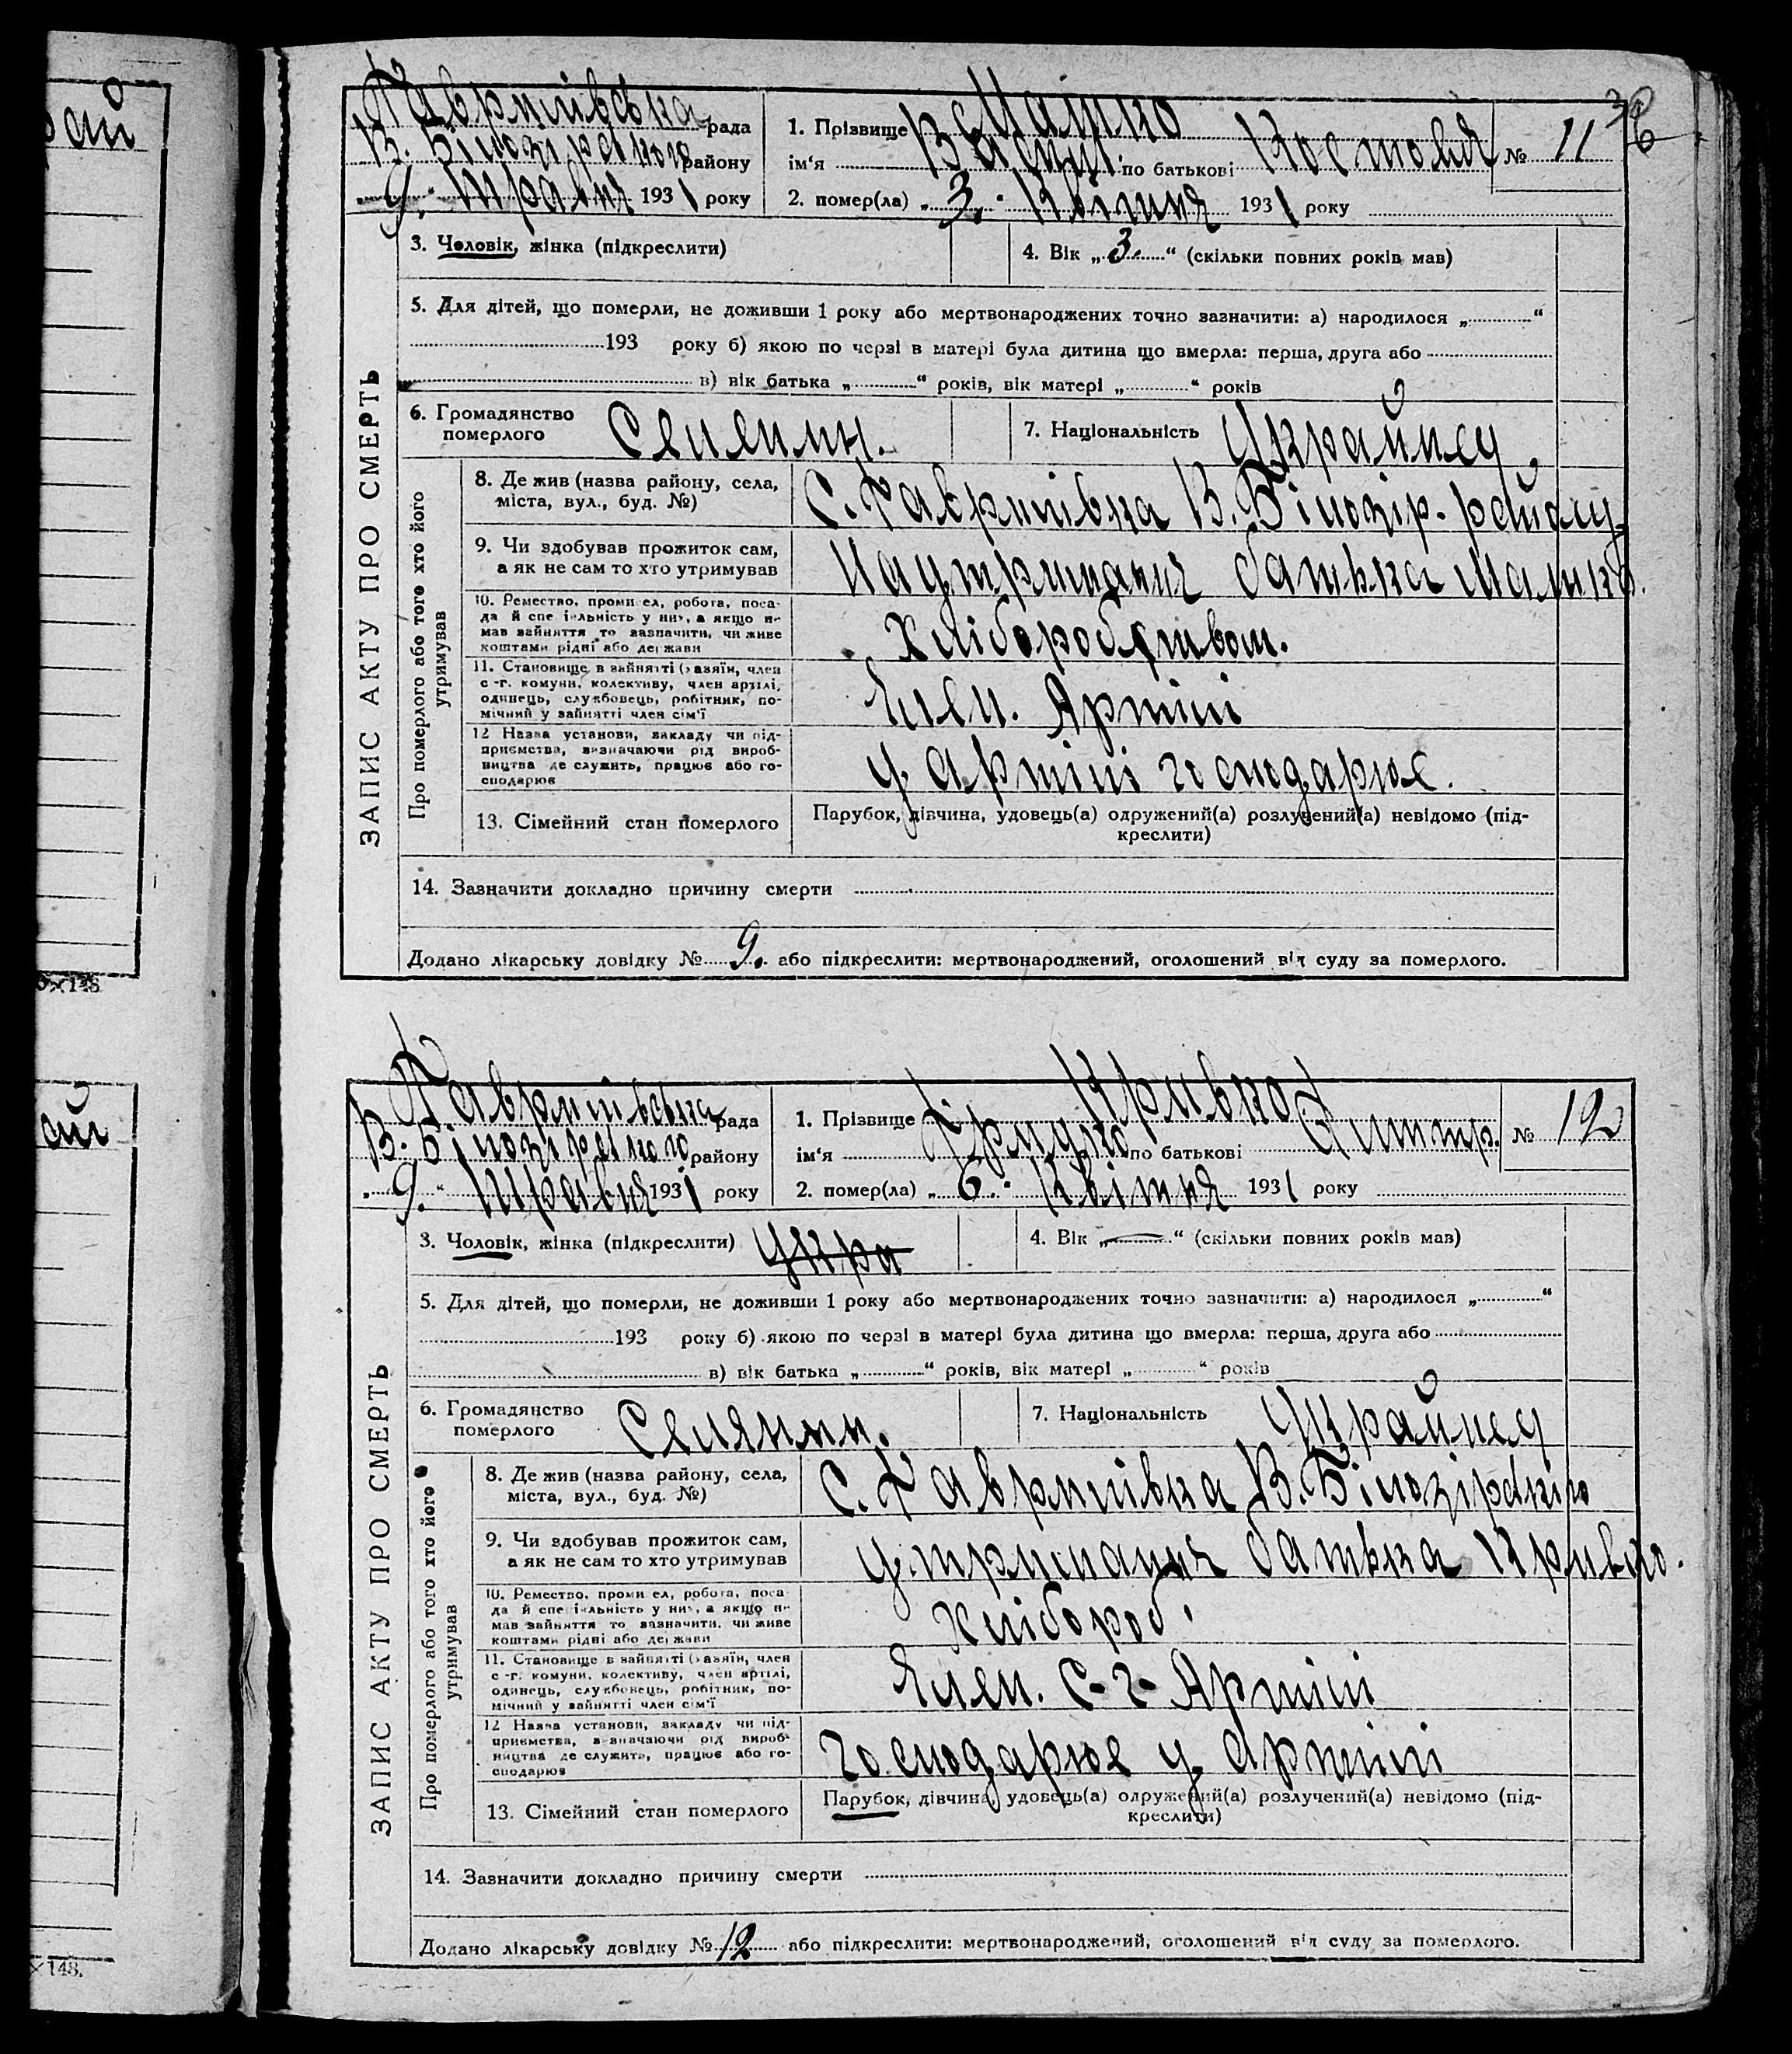 Гаврилівська рада
В. Білозірського району
9. Травня 1931 року
1. Прізвище Малько
ім'я Василь по батькові
№ 11
2. помер(ла) „3." Квітня 1931 року
3. Чоловік, жінка (підкреслити)
4. Вік „3." (скільки повних років мав)
5. Для дітей, що померли, не доживши 1 року або мертвонароджених точно зазначити: а) народилося „ "
193 року б) якою по черзі в матері була дитина що вмерла: перша, друга або
в) вік батька „ " років, вік матері „ " років
ЗАПИС АКТУ ПРО СМЕРТЬ
6. Громадянство
померлого
Селянин.
7. Національність Українец
Про померлого або того хто його
утримував
8. Де жив (назва району, села,
міста, вул., буд. №)
С. Гаврилівка В. Білозір. району
9. Чи здобував прожиток сам,
а як не сам то хто утримував
На утриманні батька Малько.
10. Ремество, промисел, робота, поса-
да й спеціяльність у них, а якщо не
мав зайняття то зазначити, чи живе
коштами рідні або держави
Хліборобством.
11. Становище в зайнятті (хазяїн, член
с.-г. комуни, колективу, член артілі,
одинець, службовець, робітник, по-
мічний у зайнятті член сім'ї
Член. Артілі
12 Назва установи, закладу чи під-
приємства, визначаючи рід вироб-
ництва де служить, працює або го-
сподарює
у артілі господарює.
13. Сімейний стан померлого
Парубок, дівчина, удовець(а) одружений(а) розлучений(а) невідомо (під-
креслити)
14. Зазначити докладно причину смерти
Додано лікарську довідку № 9. або підкреслити: мертвонароджений, оголошений від суду за померлого.
Гаврилівська рада
В. Білозірського району
„9." Травня 1931 року
1. Прізвище Кривко
ім'я по батькові Дмитр.
№ 12
2. помер(ла) „6." Квітня 1931 року
3. Чоловік, жінка (підкреслити) Укра
4. Вік „—" (скільки повних років мав)
5. Для дітей, що померли, не доживши 1 року або мертвонароджених точно зазначити: а) народилося „ "
193 року б) якою по черзі в матері була дитина що вмерла: перша, друга або
в) вік батька „ " років, вік матері „ " років
ЗАПИС АКТУ ПРО СМЕРТЬ
6. Громадянство
померлого
Селянин.
7. Національність Українец
Про померлого або того хто його
утримував
8. Де жив (назва району, села,
міста, вул., буд. №)
С. Гаврилівка В. Білозірského
9. Чи здобував прожиток сам,
а як не сам то хто утримував
утримання батька Кривко.
10. Ремество, промисел, робота, поса-
да й спеціяльність у них, а якщо не
мав зайняття то зазначити, чи живе
коштами рідні або держави
Хлібороб.
11. Становище в зайнятті (хазяїн, член
с.-г. комуни, колективу, член артілі,
одинець, службовець, робітник, по-
мічний у зайнятті член сім'ї
Член. С-г- Артілі
12 Назва установи, закладу чи під-
приємства, визначаючи рід вироб-
ництва де служить, працює або го-
сподарює
господарює у артілі
13. Сімейний стан померлого
Парубок, дівчина, удовець(а) одружений(а) розлучений(а) невідомо (під-
креслити)
14. Зазначити докладно причину смерти
Додано лікарську довідку № 12 або підкреслити: мертвонароджений, оголошений від суду за померлого.